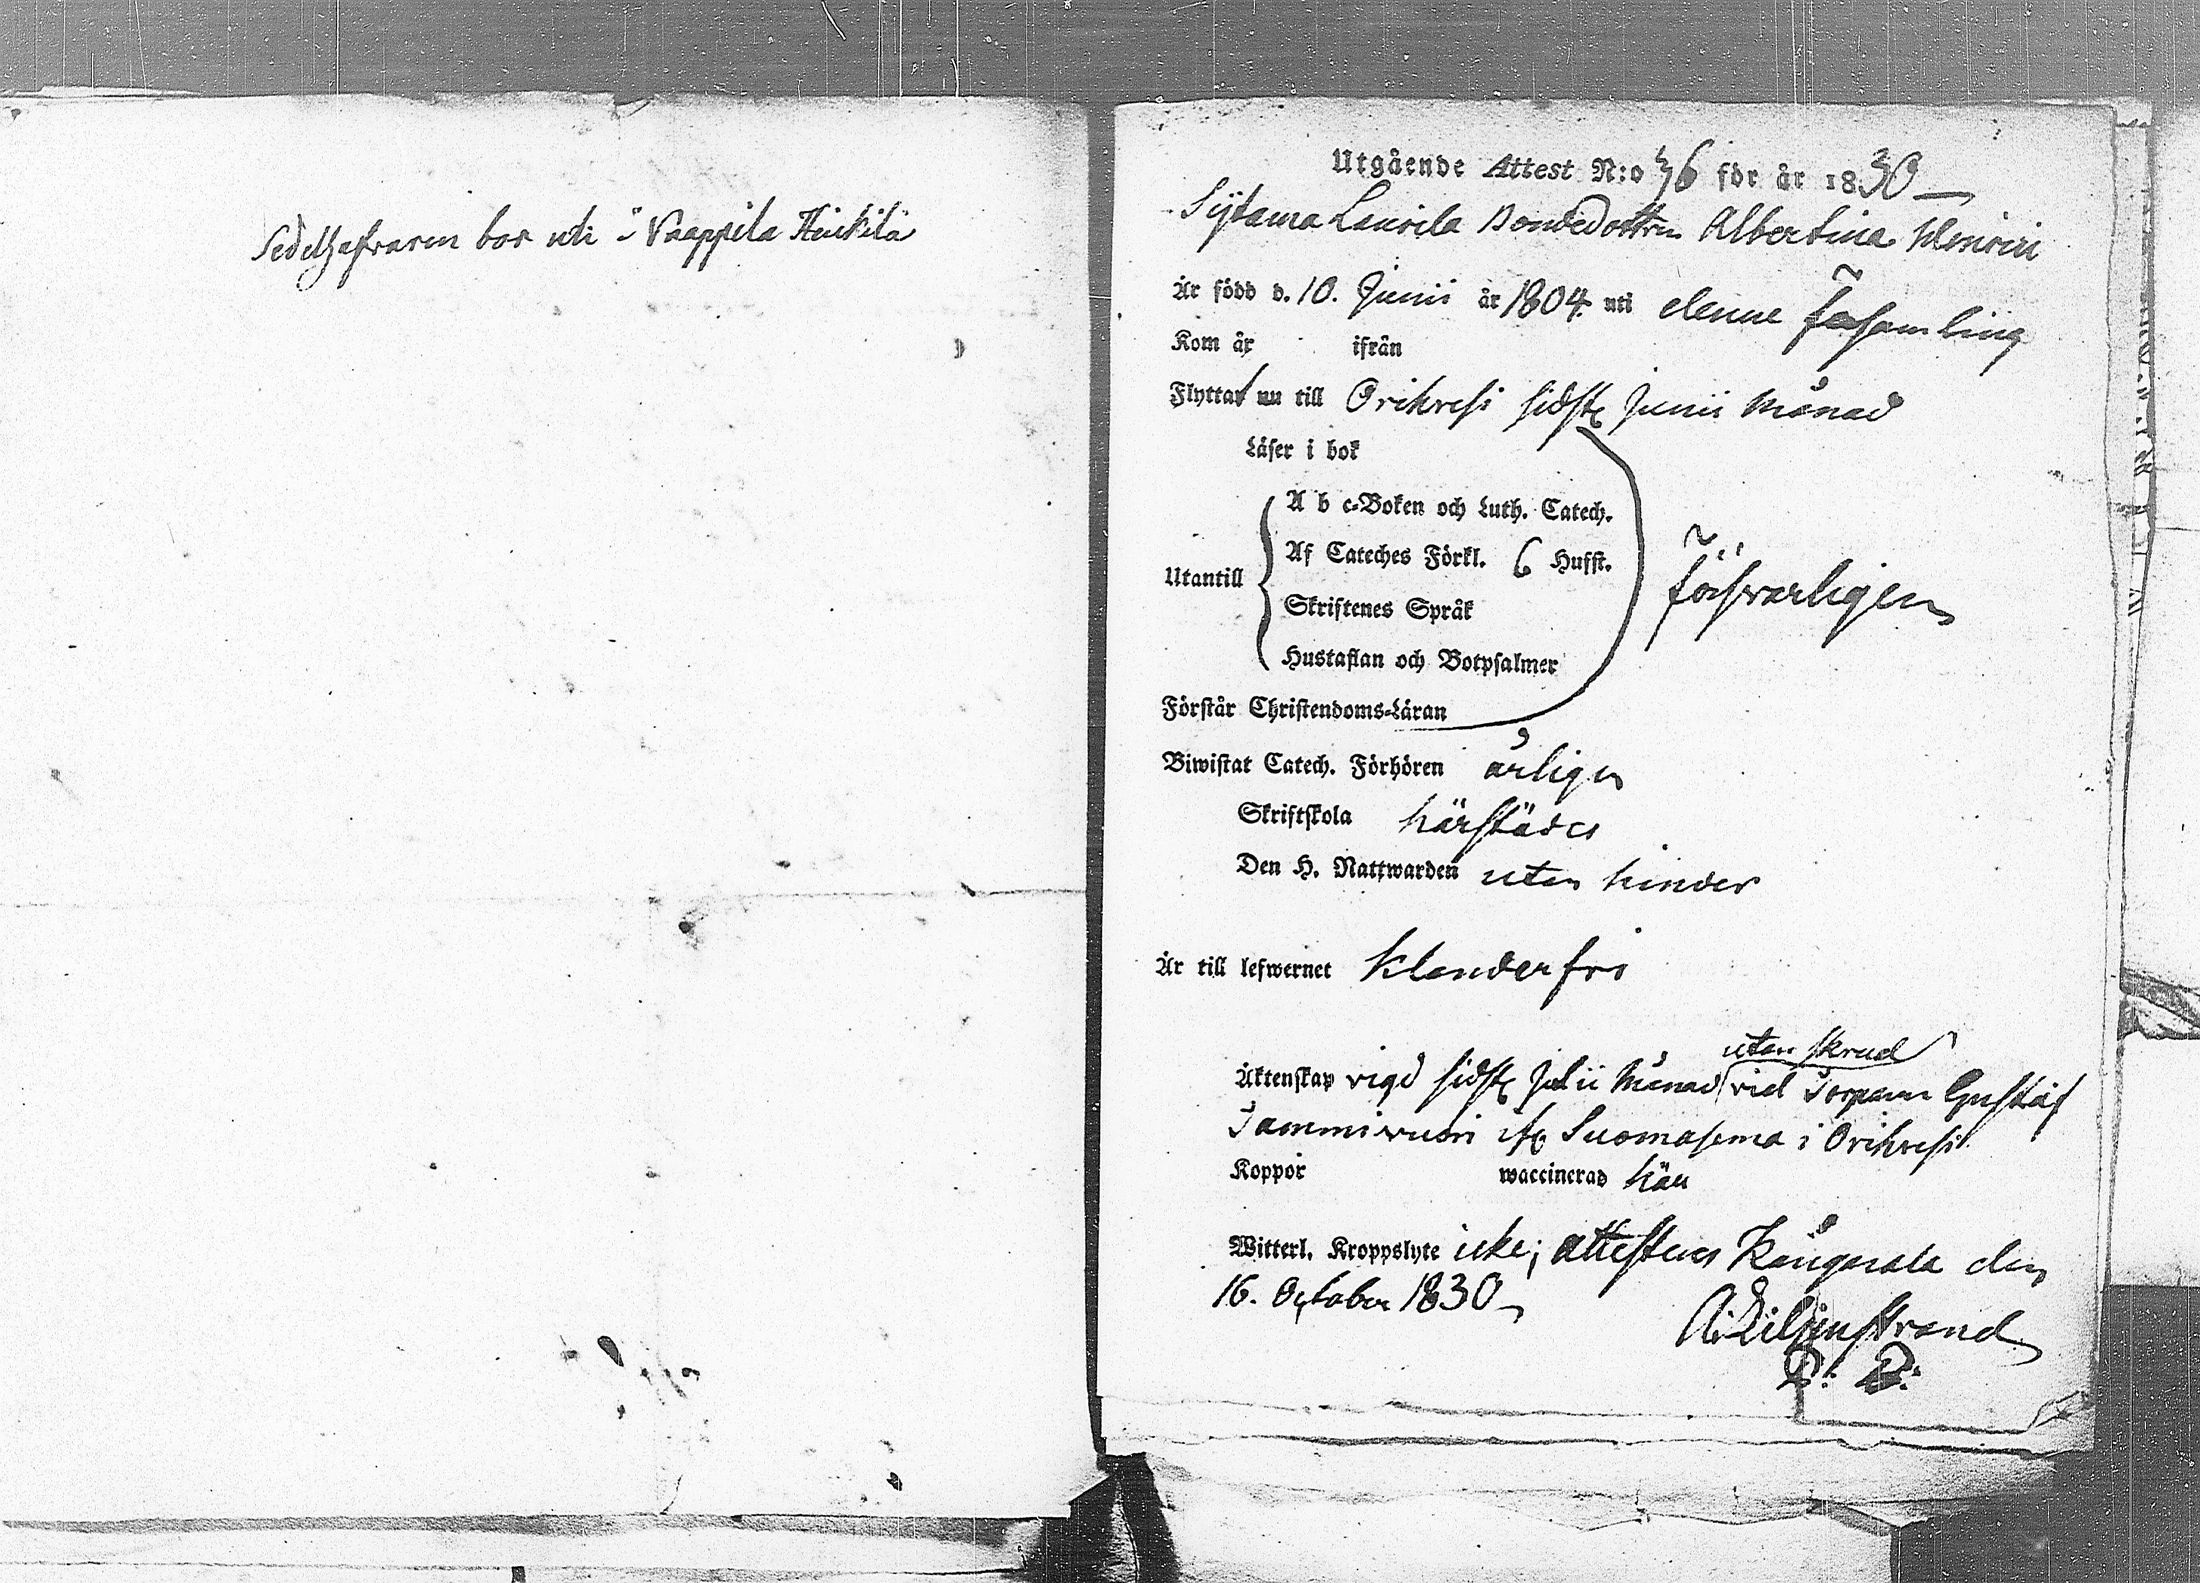 Sedelhafvaren bor uti i Vaappila Heikilä
Utgående Attest N:o 36 för år 1830
Sÿtama Laurila Bondedottren Albertina Henrici
Är född d. 10. Junii år 1804 uti denne församling
Kom år ifrån
Flyttat nu till Orihvesi sidstl Junii Månad
Läser i bok
A b c-Boken och Luth. Catech.
Af Cateches Förkl. 6 Hufst.
Utantill
Skriftenes Språk
försvarligen
Hustaflan och Botpsalmer
Förstår Christendoms-Läran
Biwistat Catech. Förhören årligen
Skriftskola härstädes
Den H. Nattwarden utan hinder
Är till lefwernet klanderfri
utan skrud
Äktenskap vigd sidstl Julii Månad vid Torparn Gustaf
Tammivuori ifr Suomasema i Orihvesi
Koppor waccinerad här
Witterl. Kroppslyte icke; attesteras Kångasala den
16. October 1830
A: Liljenstrand